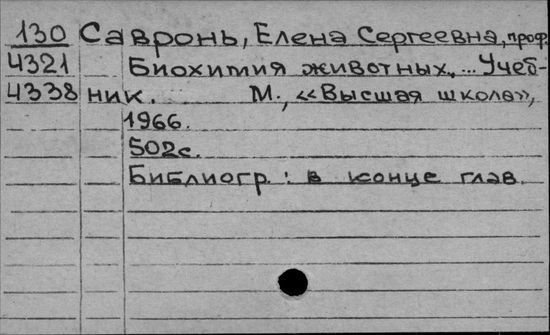 130 Савронь, Елена Сергеевна, проф.
4321 Биохимия животных. ... Учеб-
4338 ник. М., «Высшая школа»,
1966.
502с.
Библиогр.: в конце глав.